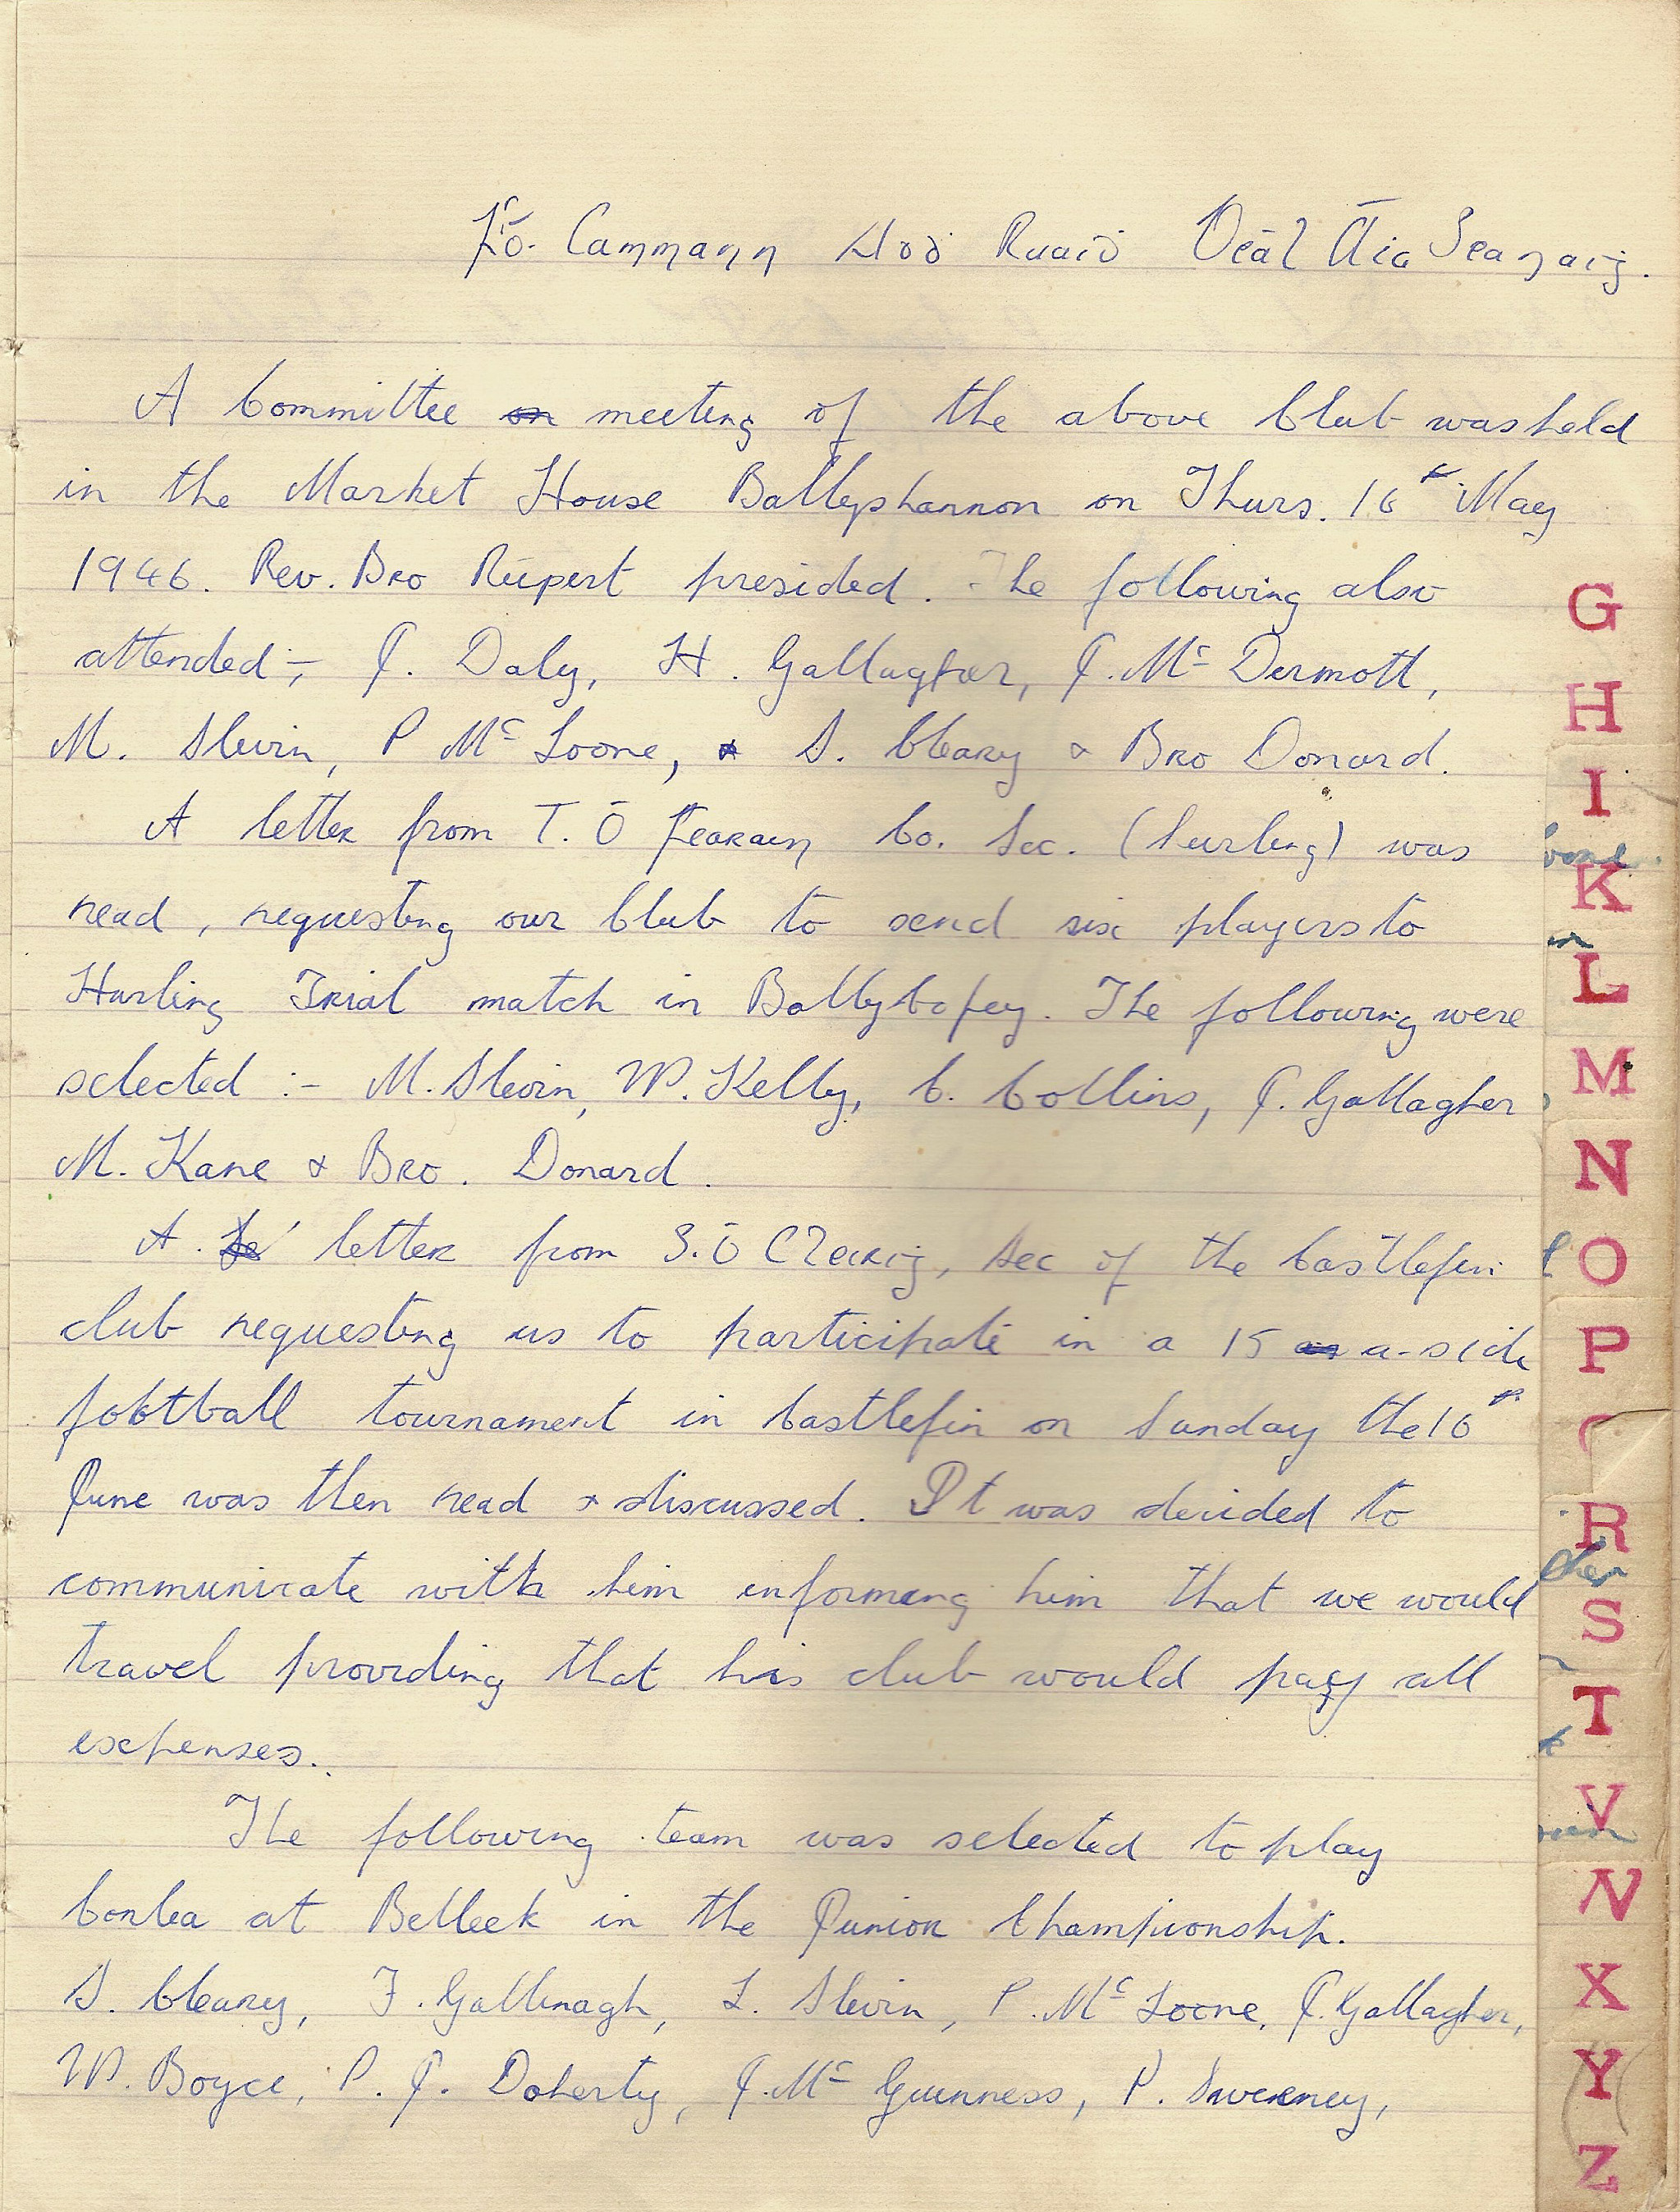 Cammann Aoḋ Ruaiḋ Béal Áṫa Seanaiġ.
A Committee on meeting of the above Club was held
in the Market House Ballyshannon on Thurs. 16th May
1946. Rev. Bro Rupert presided. The following also
attended;- J. Daly, H. Gallagher, J. Mc Dermott,
M. Slevin, P Mc Loone, & S. Cleary & Bro Donard.
A letter from T. Ó Fearain Co. Sec. (hurling) was
read, requesting our Club to send six players to
Hurling Trial match in Ballybofey. The following were
selected :- M. Slevin, W. Kelly, C. Collins, J. Gallagher
M. Kane & Bro. Donard.
A. Le letter from S. Ó Cleiriġ, Sec of the Castlefin
club requesting us to participate in a 15 a-side
football tournament in Castlefin on Sunday the 16th
June was then read & discussed. It was decided to
communicate with him informing him that we would
travel providing that his club would pay all
expenses.
The following team was selected to play
Conlea at Belleek in the Junior Championship.
S. Cleary, F. Gallinagh, L. Slevin, P. Mc Loone, J. Gallagher,
W. Boyce, P. J. Doherty, J. Mc Guinness, P. Sweeney,
G
H
I
K
L
M
N
O
P
R
S
T
V
X
Y
Z